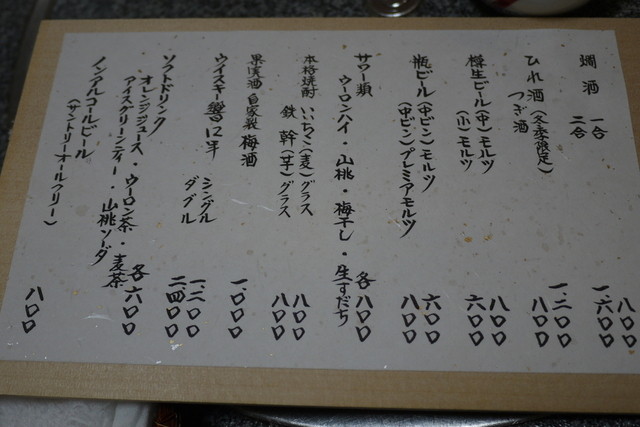 燗酒 一合 八〇〇
二合 一、六〇〇
ひれ酒(冬季限定) 一、二〇〇
つぎ酒 八〇〇
樽生ビール(中)モルツ 八〇〇
(小)モルツ 六〇〇
瓶ビール(中ビン)モルツ 六〇〇
(中ビン)プレミアモルツ 八〇〇
サワー類
ウーロンハイ・山桃・梅干し・生すだち 各八〇〇
本格焼酎 いいちこ(麦)グラス 八〇〇
鉄幹(芋)グラス 八〇〇
果実酒 自家製 梅酒 一、〇〇〇
ウイスキー 響12年 シングル 一、二〇〇
ダブル 二四〇〇
ソフトドリンク
オレンジジュース・ウーロン茶・麦茶
アイスグリーンティー・山桃ソーダ 各六〇〇
ノンアルコールビール
(サントリーオールフリー) 八〇〇